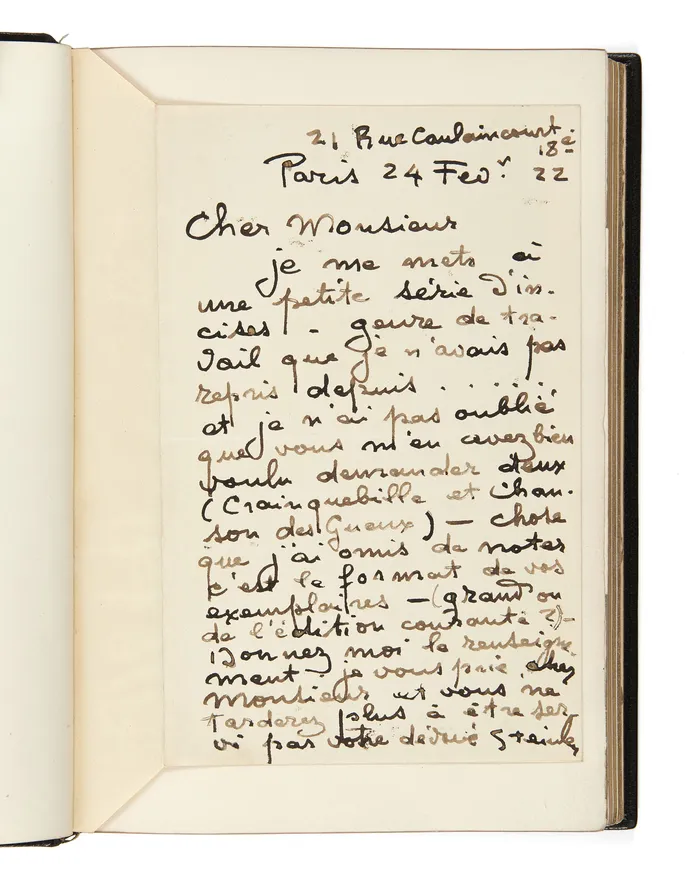 21 Rue Caulaincourt
18è
Paris 24 Fevr 22
Cher Monsieur
je me mets à
une petite série d'in-
cises - genre de tra-
vail que je n'avais pas
repris depuis . . . . . .
et je n'ai pas oublié
que vous m'en avez bien
voulu demander deux
(Crainquebille et Chan-
son des Gueux) — chose
que j'ai omis de noter
c'est le format de vos
exemplaires — (grand ou
de l'édition courante ?) -
Donnez moi le renseigne
ment - je vous prie cher
Monsieur et vous ne
tarderez plus à être ser-
vi par votre dévoué Steinlen